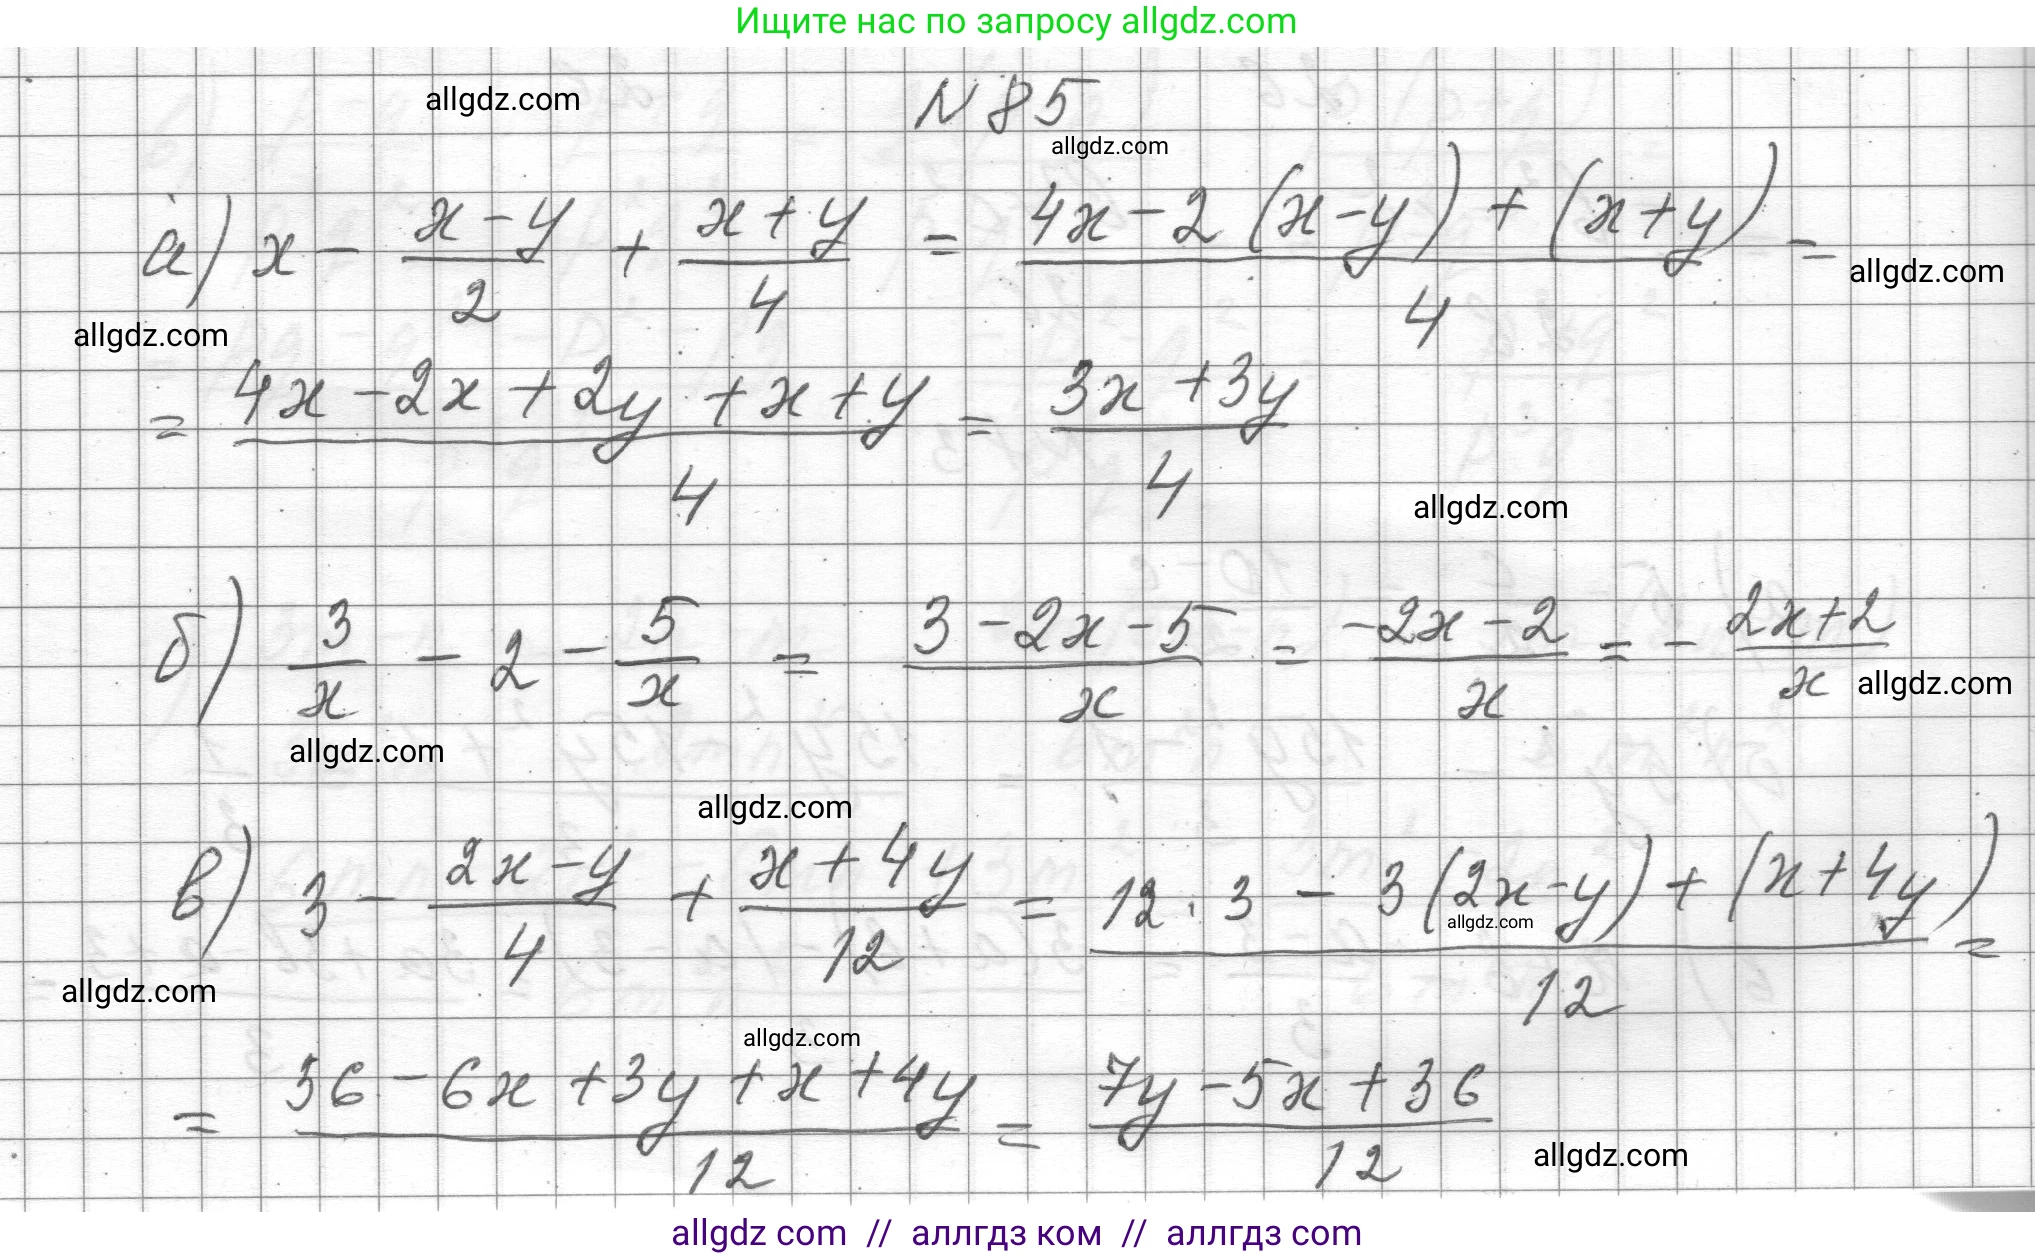 Ищите нас по запросу allgdz.com
allgdz.com
N 85
allgdz.com
а) x - (x-y)/2 + (x+y)/4 = (4x-2(x-y)+(x+y))/4 =
allgdz.com
allgdz.com
= (4x-2x+2y+x+y)/4 = (3x+3y)/4
allgdz.com
б) 3/x - 2 - 5/x = (3-2x-5)/x = (-2x-2)/x = - (2x+2)/x
allgdz.com
allgdz.com
allgdz.com
в) 3 - (2x-y)/4 + (x+4y)/12 = (12·3 - 3(2x-y)+(x+4y))/12 =
allgdz.com
allgdz.com
allgdz.com
= (36-6x+3y+x+4y)/12 = (7y-5x+36)/12
allgdz.com
allgdz com // аллгдз ком // аллгдз com